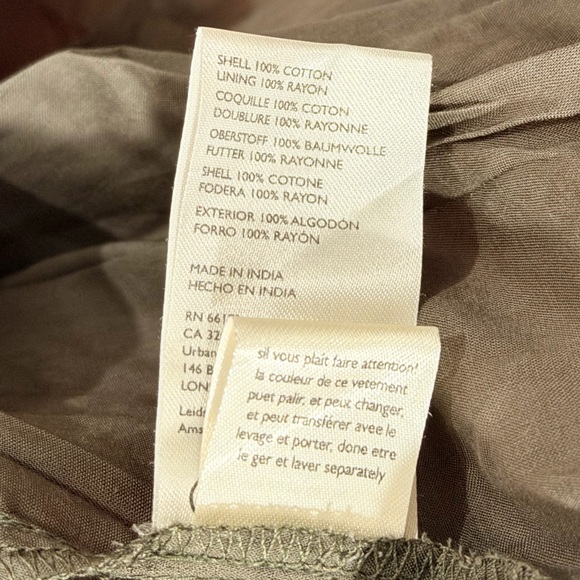 SHELL 100% COTTON
LINING 100% RAYON
COQUILLE 100% COTON
DOUBLURE 100% RAYONNE
OBERSTOFF 100% BAUMWOLLE
FUTTER 100% RAYONNE
SHELL 100% COTONE
FODERA 100% RAYON
EXTERIOR 100% ALGODÓN
FORRO 100% RAYÓN
MADE IN INDIA
HECHO EN INDIA
RN
CA
Urban
146
sil vous plait faire attention!
la couleur de ce vetement
puet palir, et peux changer,
et peut transférer avec le
levage et porter, done etre
le ger et laver separately